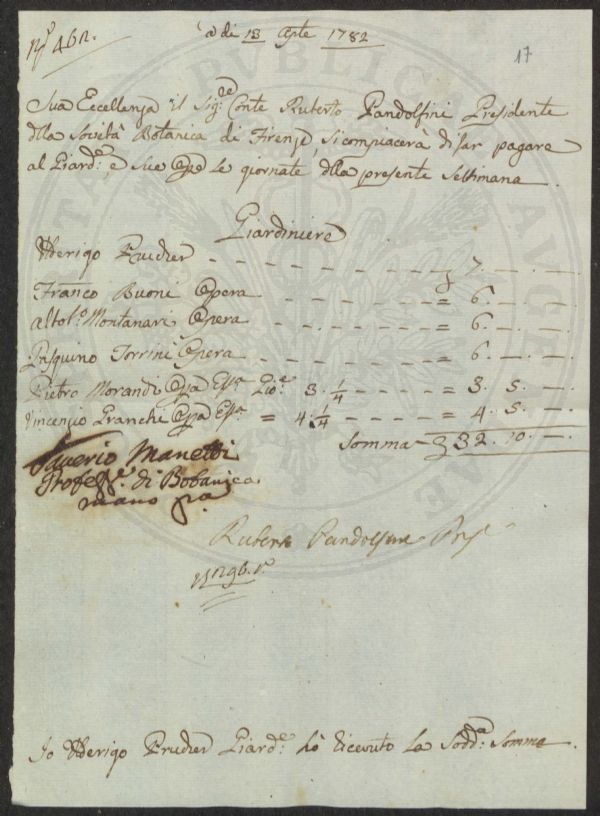 N.º 462.
a dì 13 Aple 1782
17
Sua Eccellenza il Sig.re Conte Ruberto Pandolfini Presidente
della Società Botanica di Firenze, si compiacerà di far pagare
al Giard.e e Sue Opre le giornate della presente Settimana
Giardiniere
Ulderigo Prucher - - - - - - - - - - 7. — . —
Franco Buoni Opera - - - - - = 6. — . —
Altol.º Montanari Opera - - - - - = 6. — . —
Pasquino Torrini Opera - - - - - = 6. — . —
Pietro Morandi Opa Essa Gio.e 3. 1/4 - - - - = 3. 5. —
Vincenzio Franchi Opa Essa = 4. 1/4 - - - - = 4. 5. —
Somma - 32. 10. —
Saverio Manetti
Profess.e di Botanica
mano pa
Ruberto Pandolfini Pres
Io Ulderigo Prucher Giard.e hò riceuto la Sodd.a Somma.